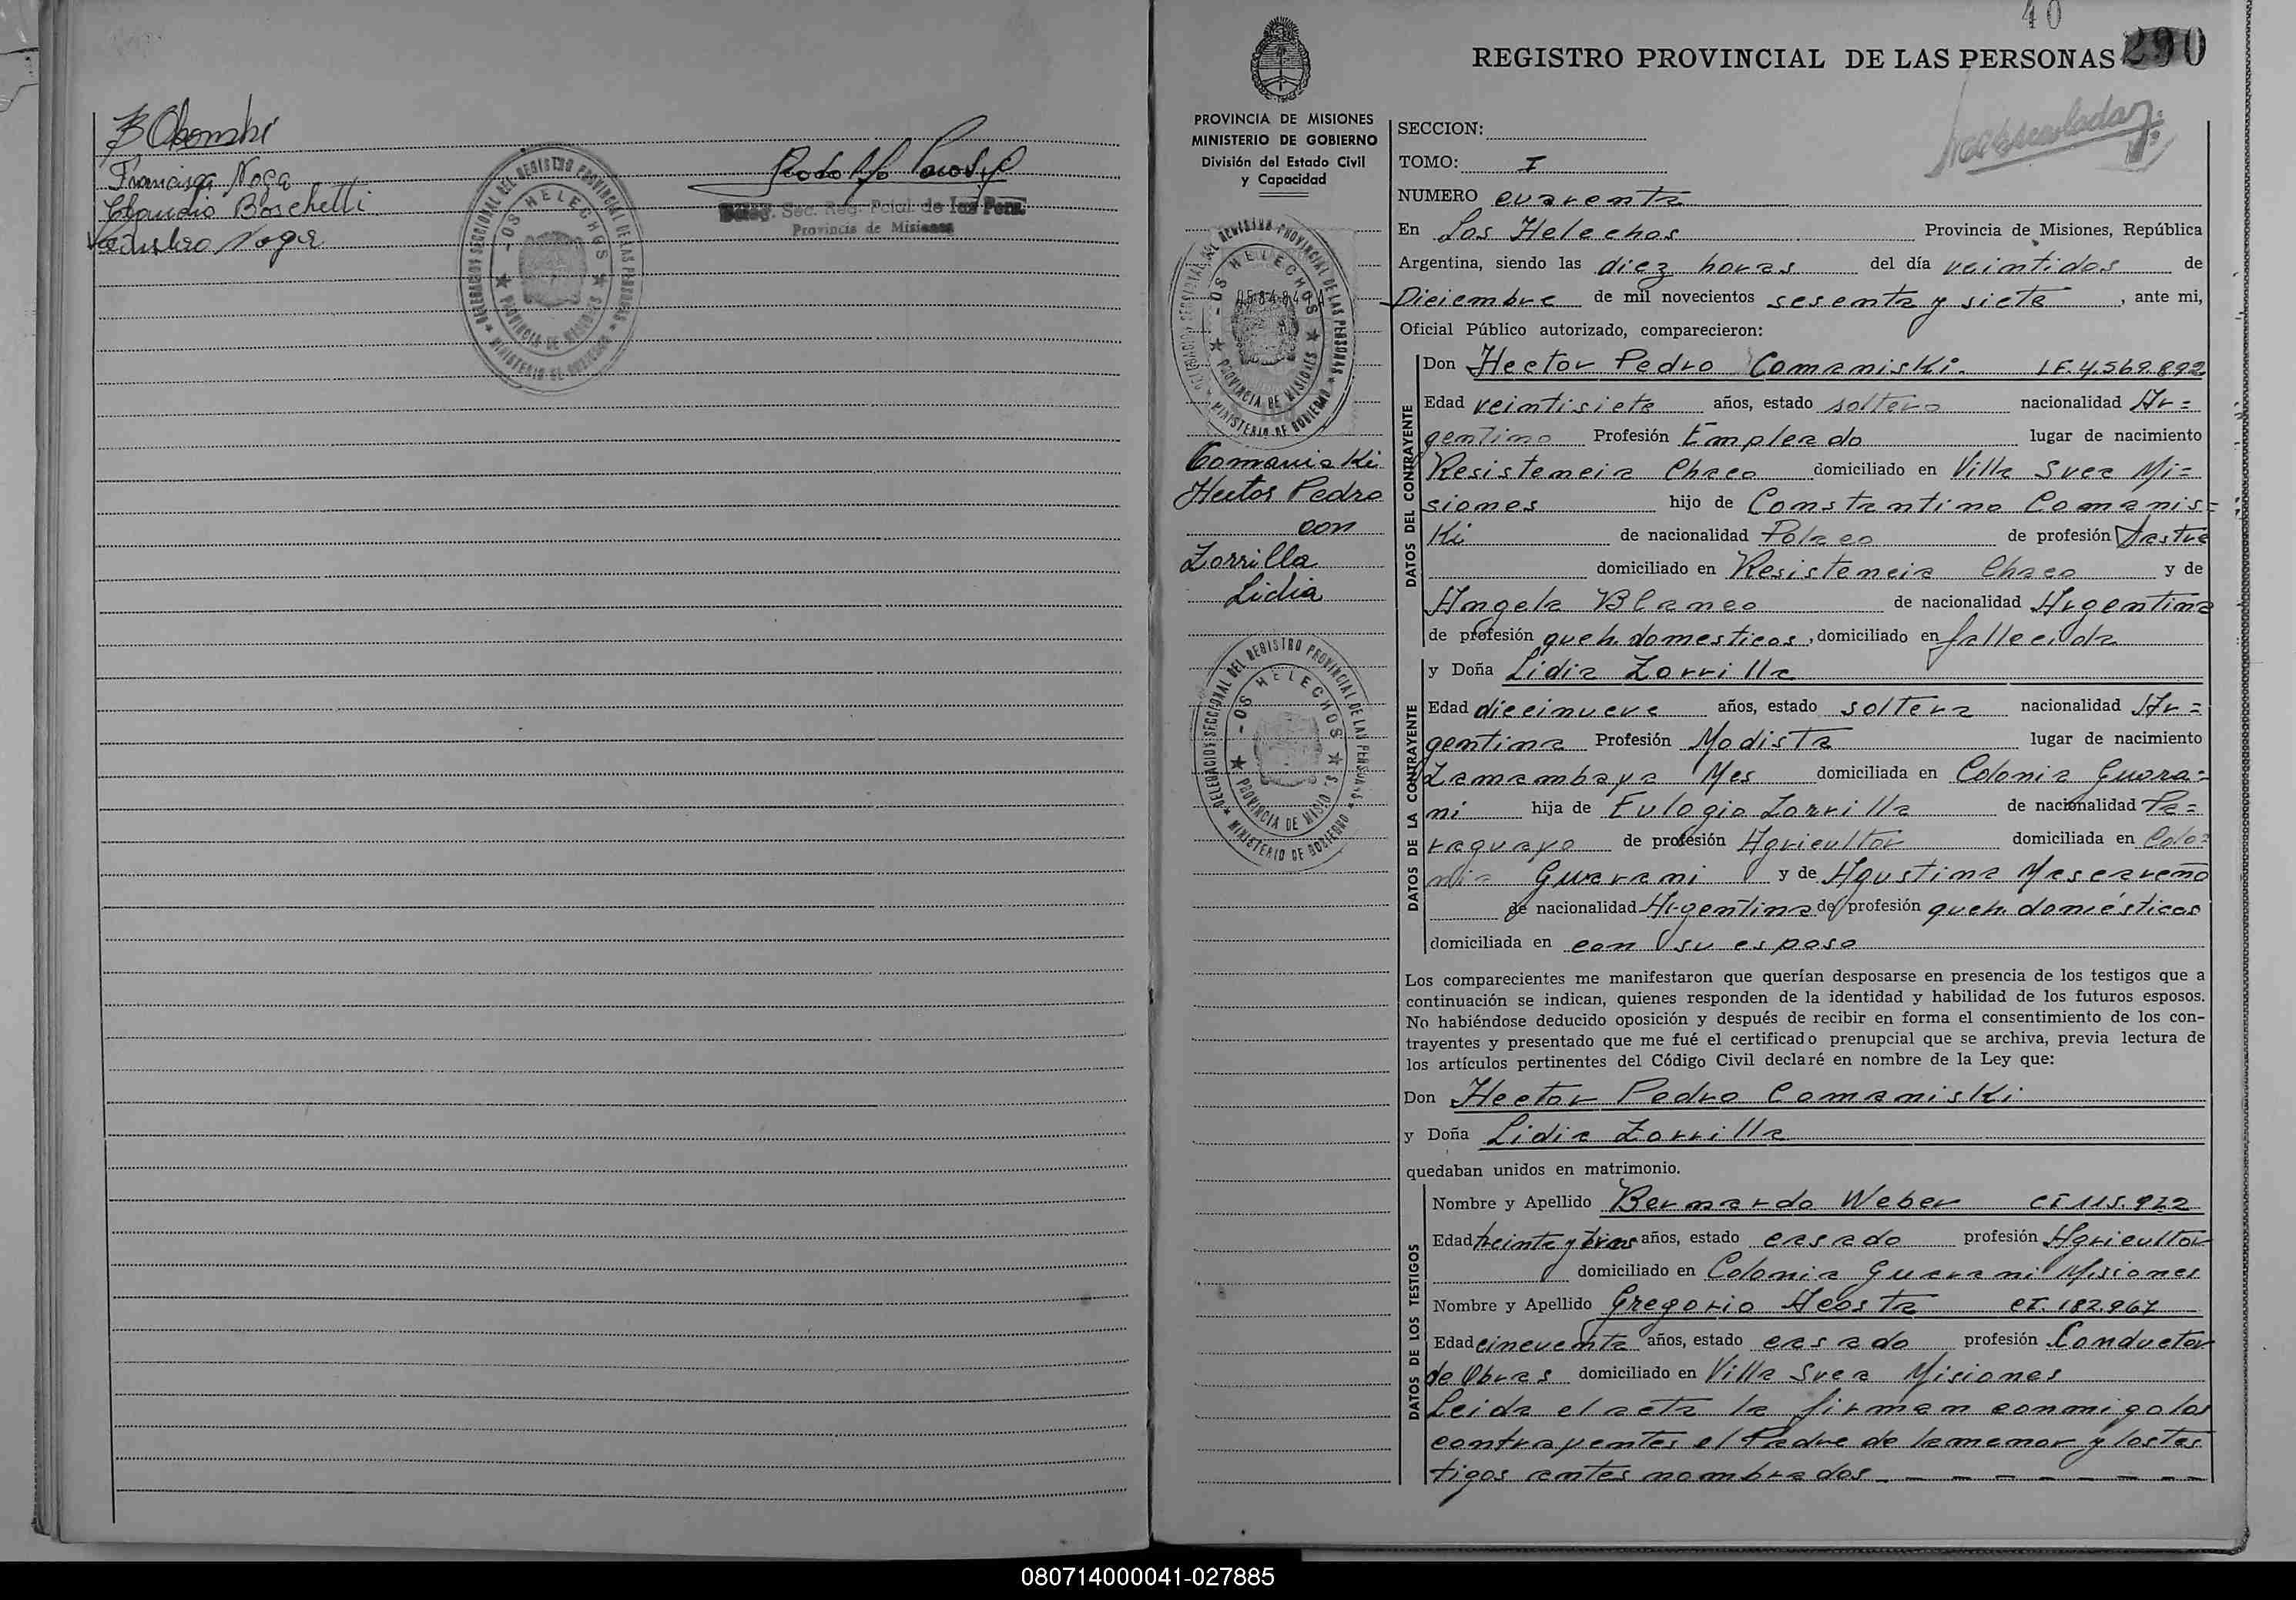 Francisca Noga
Claudio Boschetti
Noga
Sec. Reg. Pcial. de las Pers.
Provincia de Misiones
DELEGACION SECCIONAL DEL REGISTRO PROVINCIAL DE LAS PERSONAS
LOS HELECHOS
PROVINCIA DE MISIONES
MINISTERIO DE GOBIERNO
40
REGISTRO PROVINCIAL DE LAS PERSONAS 290
PROVINCIA DE MISIONES
MINISTERIO DE GOBIERNO
División del Estado Civil
y Capacidad
DELEGACION SECCIONAL DEL REGISTRO PROVINCIAL DE LAS PERSONAS
LOS HELECHOS
PROVINCIA DE MISIONES
MINISTERIO DE GOBIERNO
Comaniski
Hector Pedro
con
Zorrilla
Lidia
DELEGACION SECCIONAL DEL REGISTRO PROVINCIAL DE LAS PERSONAS
LOS HELECHOS
PROVINCIA DE MISIONES
MINISTERIO DE GOBIERNO
SECCION:
TOMO: I
NUMERO cuarenta
En Los Helechos Provincia de Misiones, República
Argentina, siendo las diez horas del día veintidos de
Diciembre de mil novecientos sesenta y siete, ante mi,
Oficial Público autorizado, comparecieron:
DATOS DEL CONTRAYENTE
Don Hector Pedro Comaniski. 4.569.892
Edad veintisiete años, estado soltero nacionalidad Ar=
gentino Profesión Empleado lugar de nacimiento
Resistencia Chaco domiciliado en Villa Svea Mi=
siones hijo de Constantino Comanis=
ki de nacionalidad Polaco de profesión Sastre
domiciliado en Resistencia Chaco y de
Angela Blanco de nacionalidad Argentina
de profesión queh. domesticos, domiciliado en fallecida
DATOS DE LA CONTRAYENTE
y Doña Lidia Zorrilla
Edad diecinueve años, estado soltera nacionalidad Ar=
gentina Profesión Modista lugar de nacimiento
Zamambaya Mes domiciliada en Colonia Guara=
ni hija de Eulogio Zorrilla de nacionalidad Pa=
raguayo de profesión Agricultor domiciliada en Colo=
nia Guarani y de Agustina Mascareño
de nacionalidad Argentina de profesión queh. domésticos
domiciliada en con su esposo
Los comparecientes me manifestaron que querían desposarse en presencia de los testigos que a
continuación se indican, quienes responden de la identidad y habilidad de los futuros esposos.
No habiéndose deducido oposición y después de recibir en forma el consentimiento de los con-
trayentes y presentado que me fué el certificado prenupcial que se archiva, previa lectura de
los artículos pertinentes del Código Civil declaré en nombre de la Ley que:
Don Hector Pedro Comaniski
y Doña Lidia Zorrilla
quedaban unidos en matrimonio.
DATOS DE LOS TESTIGOS
Nombre y Apellido Bernardo Weber CI 115.922
Edad treinta y tres años, estado casado profesión Agricultor
domiciliado en Colonia Guarani Misiones
Nombre y Apellido Gregorio Acosta CI. 182.967
Edad cincuenta años, estado casado profesión Conductor
de Obras domiciliado en Villa Svea Misiones
Leida el acta la firman conmigo los
contrayentes el Padre de la menor y los tes
tigos antes nombrados
080714000041-027885